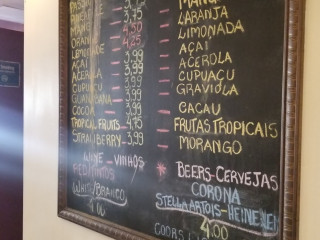 MANGA
LARANJA
ORAN 4.25
LIMONADA
LEMONADE 3.99
AÇAI
AÇAI 3.99
ACEROLA
ACEROLA 3.99
CUPUAÇU
CUPUAÇU 3.99
GRAVIOLA
GUANABANA 3.99
COCOA 3.99
CACAU
TROPICAL FRUITS 4.75
FRUTAS TROPICAIS
STRAWBERRY 3.99
MORANGO
WINE - VINHOS
BEERS-CERVEJAS
RED/TINTOS
CORONA
WHITE/BRANCO
STELLA ARTOIS-HEINEKEN
4.00
COORS